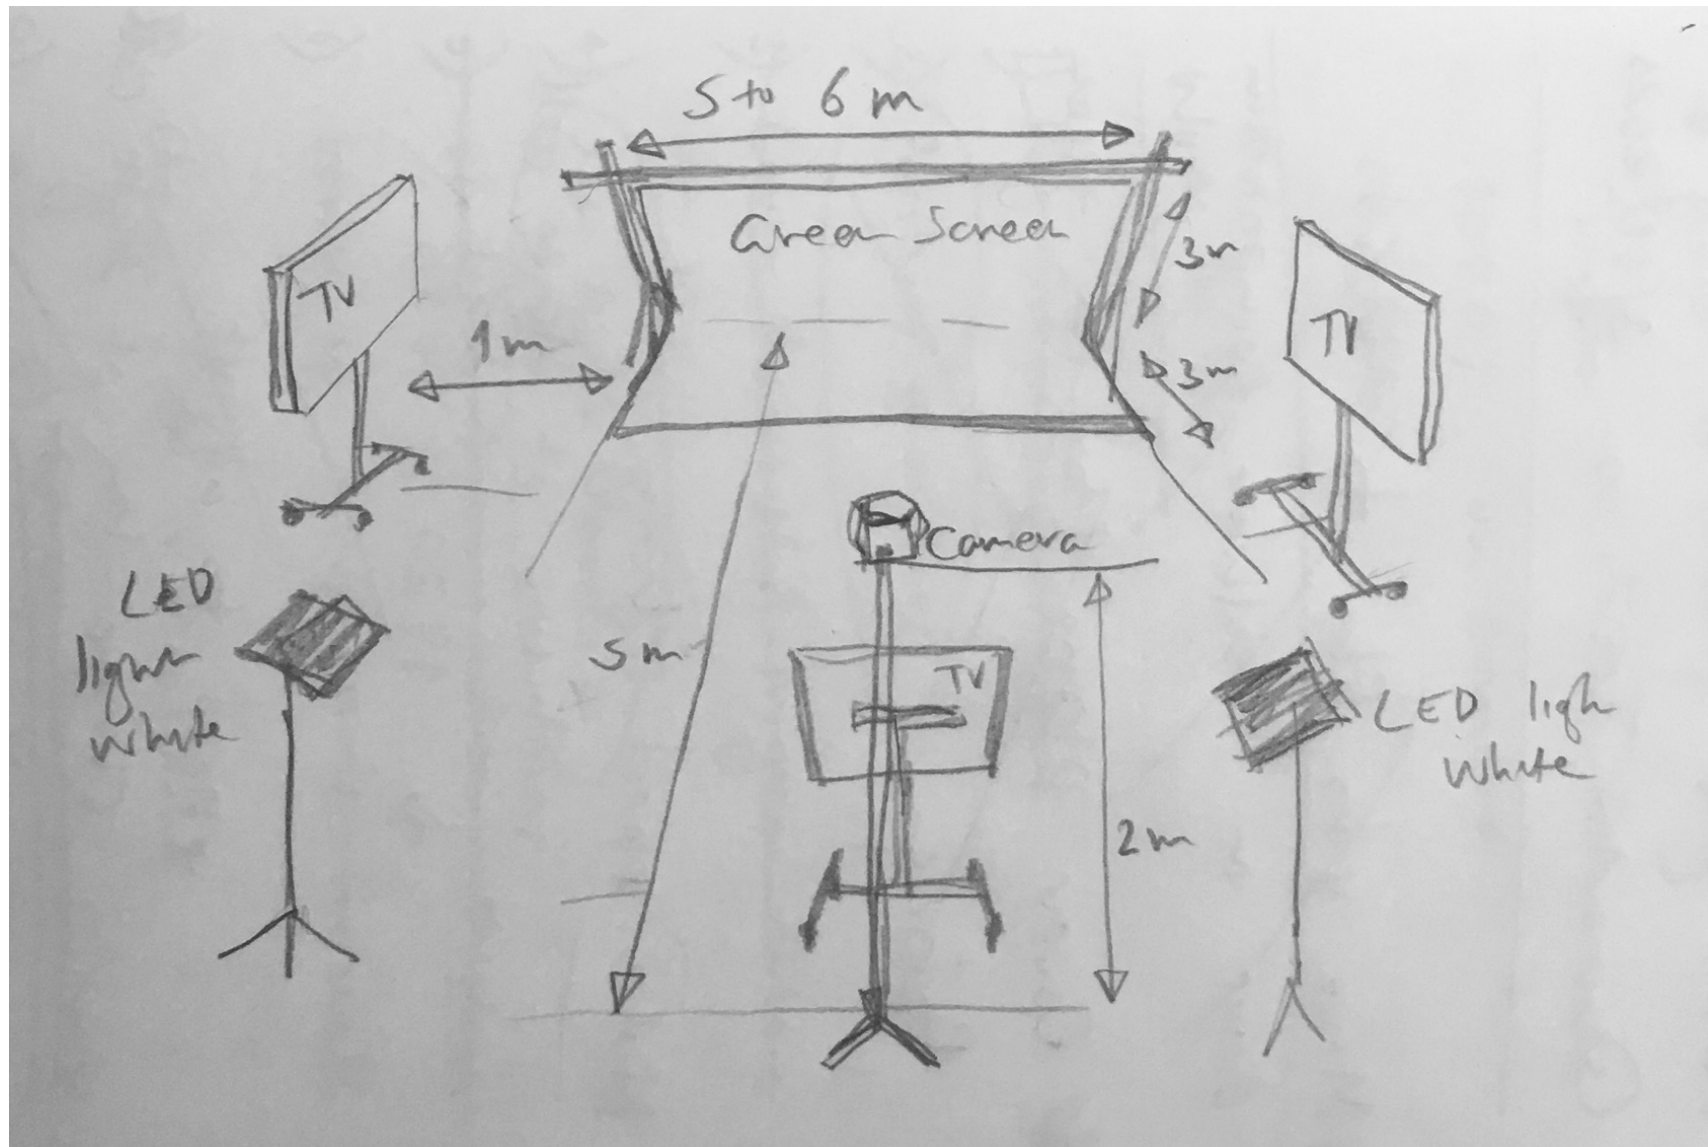 5 to 6 m
Green Screen
3m
TV
TV
1m
3m
Camera
LED
light
white
5m
TV
LED ligh
white
2m